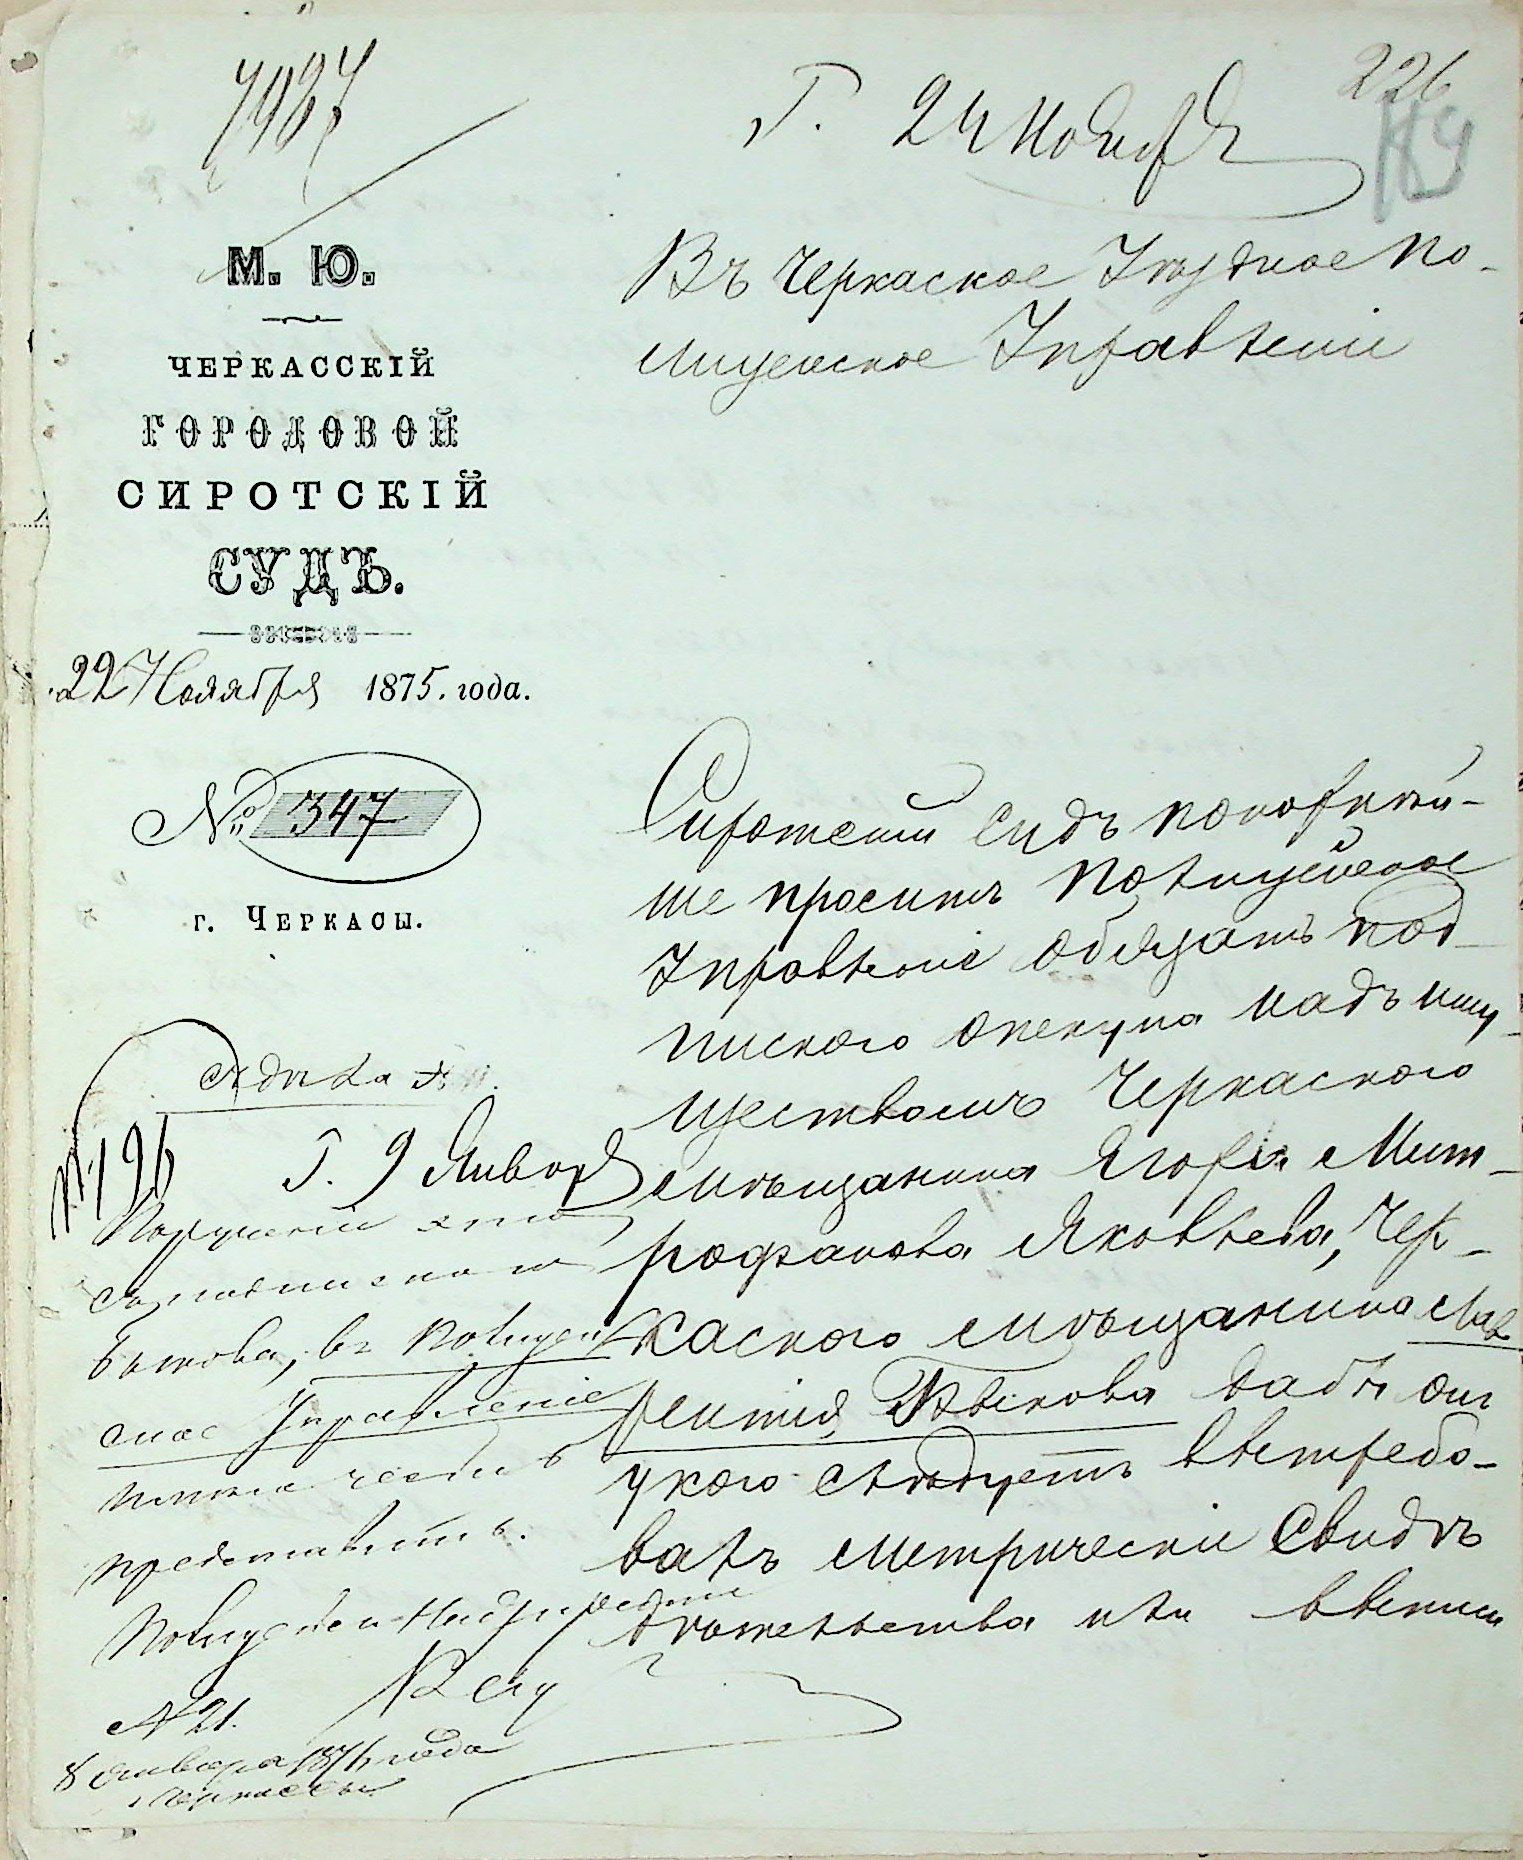 7987
Г. 24 Ноября
226
М. Ю.
ЧЕРКАССКІЙ
ГОРОДОВОЙ
СИРОТСКІЙ
СУДЪ.
22 Ноября 1875. года.
№ 347
г. ЧЕРКАСЫ.
Въ Черкаское Уѣздное По-
лицейское Управленіе
Сиротскій Судъ покорнѣй-
ше проситъ Полицейское
Управленіе обязать под-
пискою опекуна надъ иму-
ществомъ Черкаского
мѣщанина Ягорія Мит-
рофанова Яковлева, Чер-
каского мѣщанина Лав-
рентія Быкова дабы онъ
у кого слѣдуетъ вытребо-
валъ метрическіе Свидѣ-
тельства или выписи
№ 126
Г. 9 Января
Порученіе это
съ подпискою
Быкова, въ Полицей-
ское Управленіе
представить.
Полицейскій Надзиратель
№ 21.
8 Января 1876 года
г. Черкассы